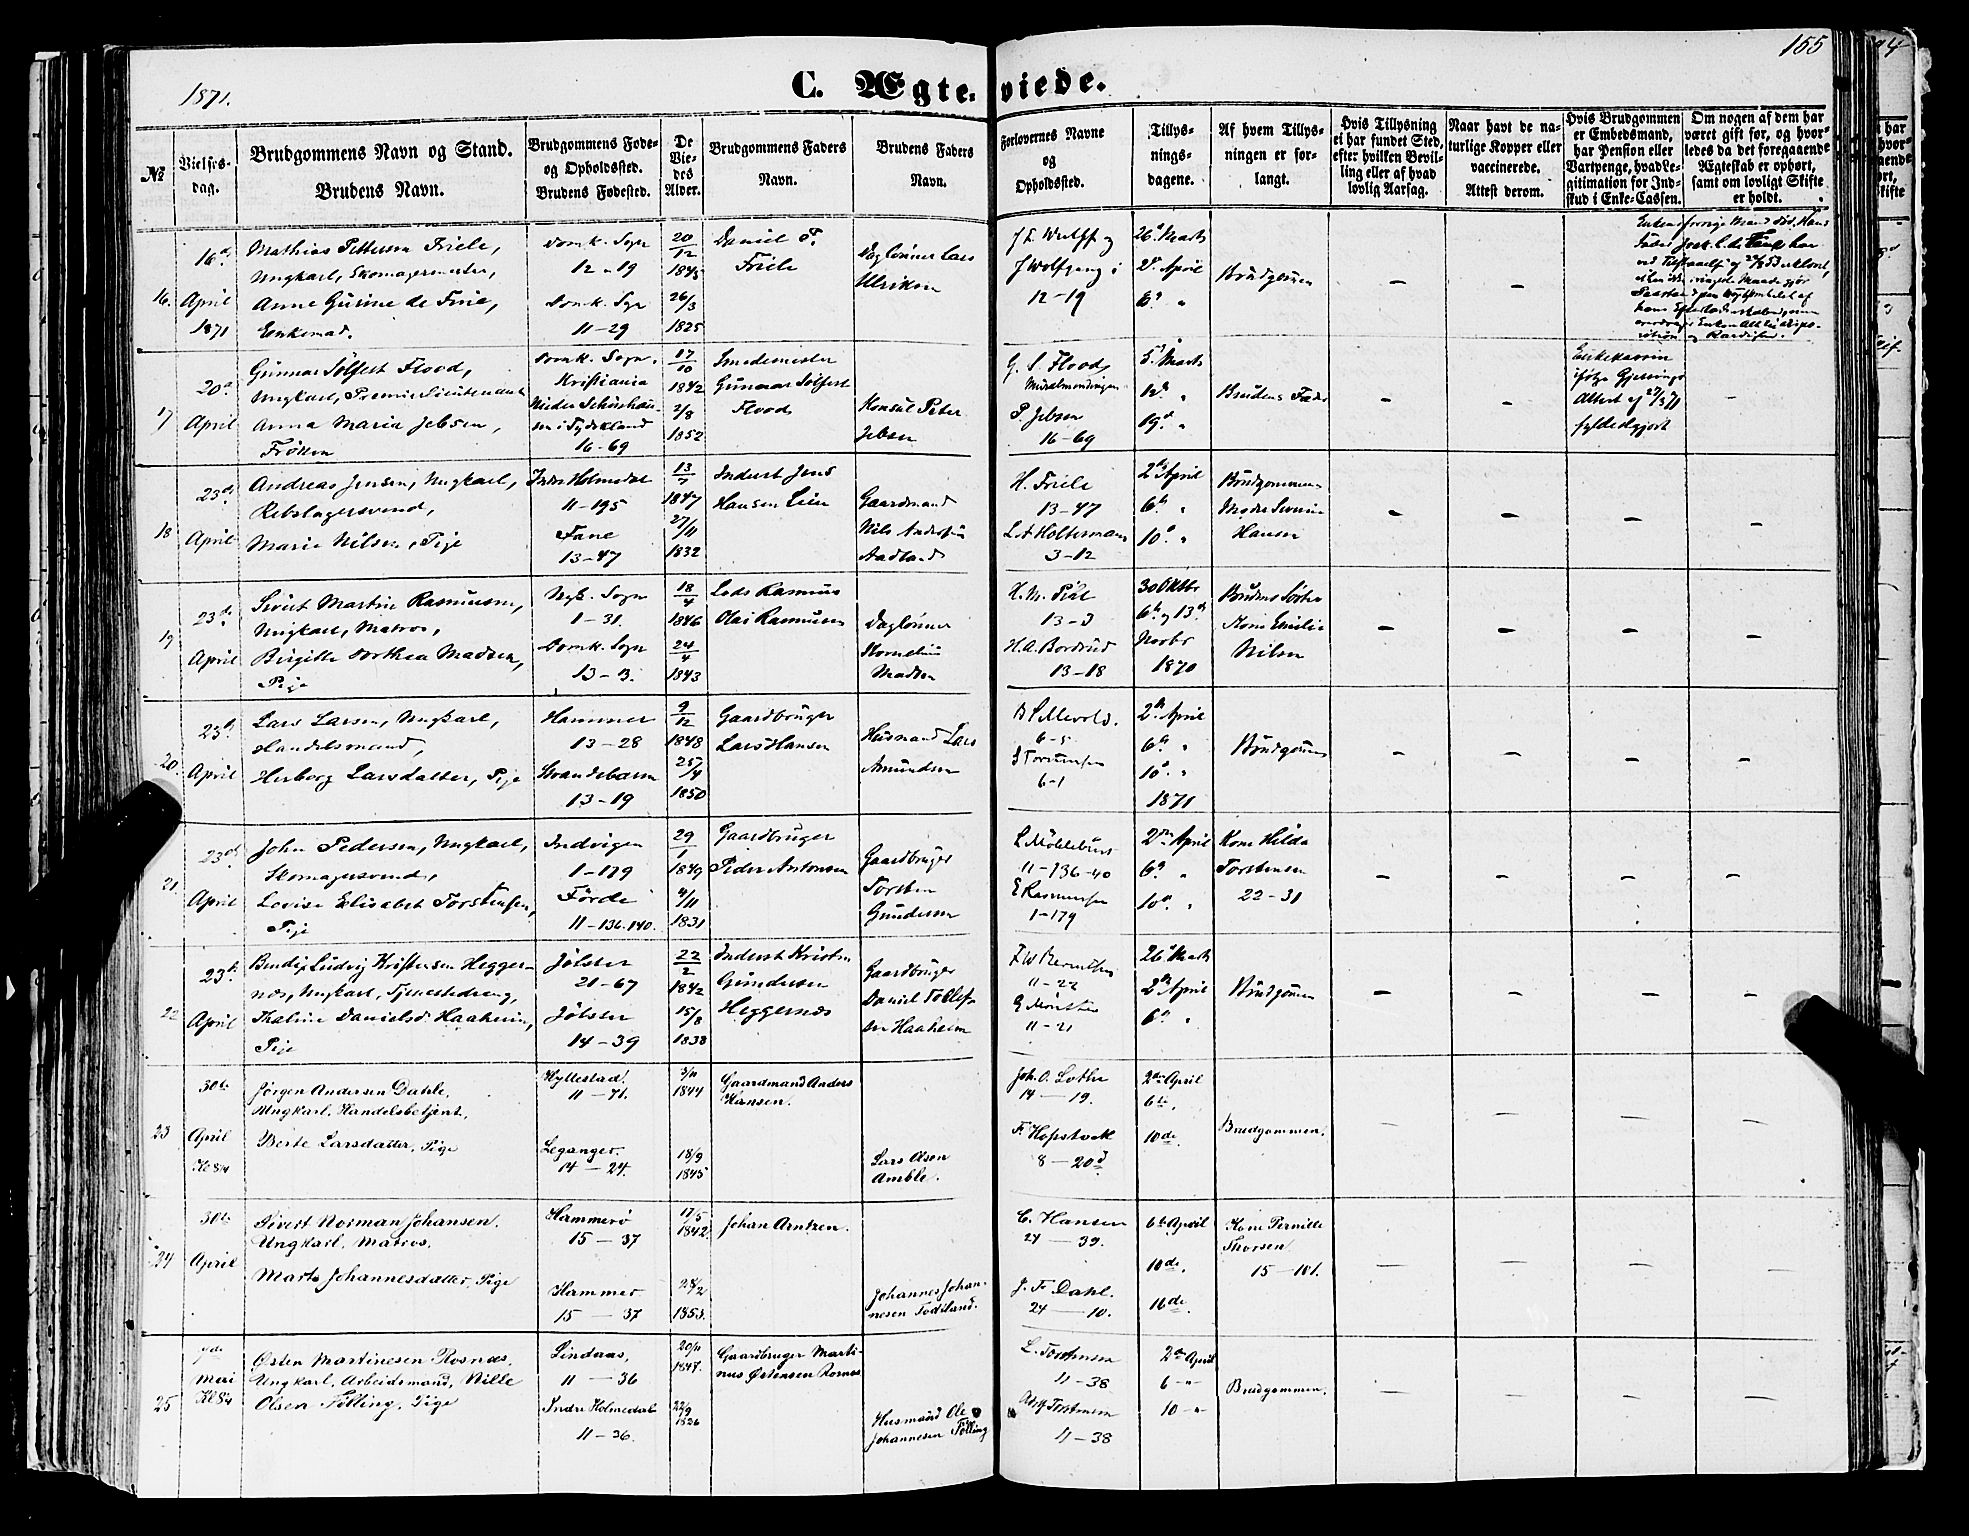 155
1871.
C. Ægteviede.
No
Vielses-
dag.
Brudgommens Navn og Stand.
Brudens Navn.
Brudgommens Føde-
og Opholdssted.
Brudens Fødested.
De
Vie-
des
Alder.
Brudgommens Faders
Navn.
Brudens Faders
Navn.
Forlovernes Navne
og
Opholdssted.
Tillys-
nings-
dagene.
Af hvem Tillys-
ningen er for-
langt.
Hvis Tillysning
ei har fundet Sted,
efter hvilken Bevil-
ling eller af hvad
lovlig Aarsag.
Naar havt de na-
turlige Kopper eller
vaccinerede.
Attest derom.
Hvis Brudgommen
er Embedsmand,
har Pension eller
Vartpenge, hvad Le-
gitimation for Ind-
skud i Enke-Cassen.
Om nogen af dem har
været gift før, og hvor-
ledes da det foregaaende
Ægteskab er ophørt,
samt om lovligt Skifte
er holdt.
16.
16de
April
1871
Mathias Pettersen Friele,
Ungkarl, Skomagermester,
Anne Gurine de Fine,
Enkemad.
Domk. Sogn
12-19
Domk. Sogn
11-29
20/12
1845
26/3
1825
Daniel P.
Friele
Daglønner Lars
Ulriksen
J. Wolfgang i
12-19
26de Marts
2de April
6te "
Brudgommen
17
20de
April
Gunnar Sølfest Flood,
Ungkarl, Premierlieutenant
Anna Maria Jebsen,
Frøken
Domk. Sogn.
Kristiania
i Tydskland
16-69
17/10
1842
2/8
1852
Smedemester
Gunnar Sølfest
Flood
Konsul Peter
Jebsen
G. S. Flood
P. Jebsen
16-69
5te Marts
12te "
19de "
Brudens Fader
Enkekassen
ifølge Gjessings
Attest af 27/3 71
fyldestgjort
18
23de
April
Andreas Jensen, Ungkarl,
Rebslagersvend,
Marie Nilsen, Pige
Indre Holmedal
11-195
Fane
13-47
13/7
1847
27/11
1832
Inderst Jens
Hansen Lien
Gaardmand
Nils Andersen
Aadland
H. Friele
13-47
L. A. Holtermann
3-12
2den April
6te "
10de "
Brudgommens
Moder Severine
Hansen
19
23de
April
Sivert Martin Rasmussen,
Ungkarl, Matros,
Birgitte Dorthea Madsen,
Pige
Nyk. Sogn
1-31.
Domk. Sogn
13-3.
18/4
1846
24/4
1843
Lods Rasmus
Olai Rasmussen
Daglønner
Kornelius
Madsen
13-3
H. A. Bordrud
13-18
30 Oktbr
6te og 13de
Novbr
1870
Brudens Søster
Kone Emilie
Nilsen
20.
23de
April
Lars Larsen, Ungkarl,
Handelsmand,
Herborg Larsdatter, Pige
Hammer
13-28
Strandebarm
13-19
9/12
1848
25/4
1850
Gaardbruger
Lars Hansen
Husmand Lars
Amundsen
6-5
S Torstensen
6-1
2den April
6te "
10de "
1871
Brudgommen
21.
23de
April
John Pedersen, Ungkarl,
Skomagersvend,
Lovise Elisabet Torstensen,
Pige
Indvigen
1-179
Førde
11-136.140.
29/1
1849
4/11
1831
Gaardbruger
Peder Antonsen
Gaardbruger
Torsten
Gundersen
11-136-40
E Rasmussen
1-179
2den April
6te "
10de "
Kone Hilda
Torstensen
22-31
22
23de
April
Bendix Ludvig Kristensen Hegger-
næs, Ungkarl, Tjenestedreng,
Katrine Danielsd. Haaheim,
Pige
Jølster
21-67
Jølster
14-39
22/2
1842
15/8
1838
Inderst Kristen
Gundersen
Heggernæs
Gaardbruger
Daniel Tollefs-
sen Haaheim
11-22
11-21
26de Marts
2den April
6te "
Brudgommen
23
30te
April
Kl 8¼
Jørgen Andersen Dahle,
Ungkarl, Handelsbetjent,
Berte Larsdatter, Pige
Hyllestad.
11-71.
Leganger.
14-24.
3/11
1844
18/9
1845
Gaardmand Anders
Hansen.
Lars Olsen
Amble.
Joh. O. Lothe
14-19.
F. Hopstock
8-20d
2den April
6te.
10de.
Brudgommen.
24
30te
April
Sivert Norman Johansen.
Ungkarl, Matros.
Marta Johannesdatter, Pige
Hammerø
15-37
Hammer
15-37
17/5
1842
28/2
1853.
Johan Arntzen.
Johannes Johan-
nesen Todtland.
C. Hansen
24-39.
J. F. Dahl.
24-10.
6te April
10de.
16de.
Kone Pernille
Thorsen
15-101.
25
7de
Mai
Kl 8¼
Østen Martinesen Rosnæs,
Ungkarl, Arbeidsmand, Nille
Olsen Følling, Pige
Lindaas,
11-36
Indre Holmedal
11-36.
20/11
1847.
22/9
1826
Gaardbruger Marti-
nus Østensen Rosnæs
Husmand Ole
Johannesen Følling
L. Torstensen
11-38
Torstensen
11-38
2den April
6 - "
10 - "
Brudgommen.